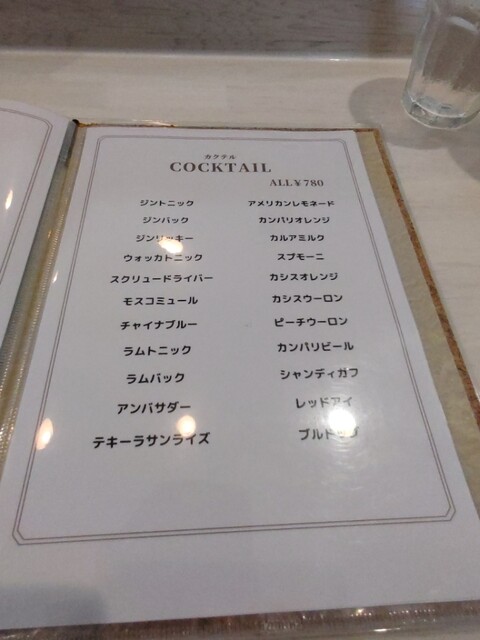 カクテル
COCKTAIL
ALL¥780
ジントニック
ジンバック
ジンリッキー
ウォッカトニック
スクリュードライバー
モスコミュール
チャイナブルー
ラムトニック
ラムバック
アンバサダー
テキーラサンライズ
アメリカンレモネード
カンパリオレンジ
カルアミルク
スプモーニ
カシスオレンジ
カシスウーロン
ピーチウーロン
カンパリビール
シャンディガフ
レッドアイ